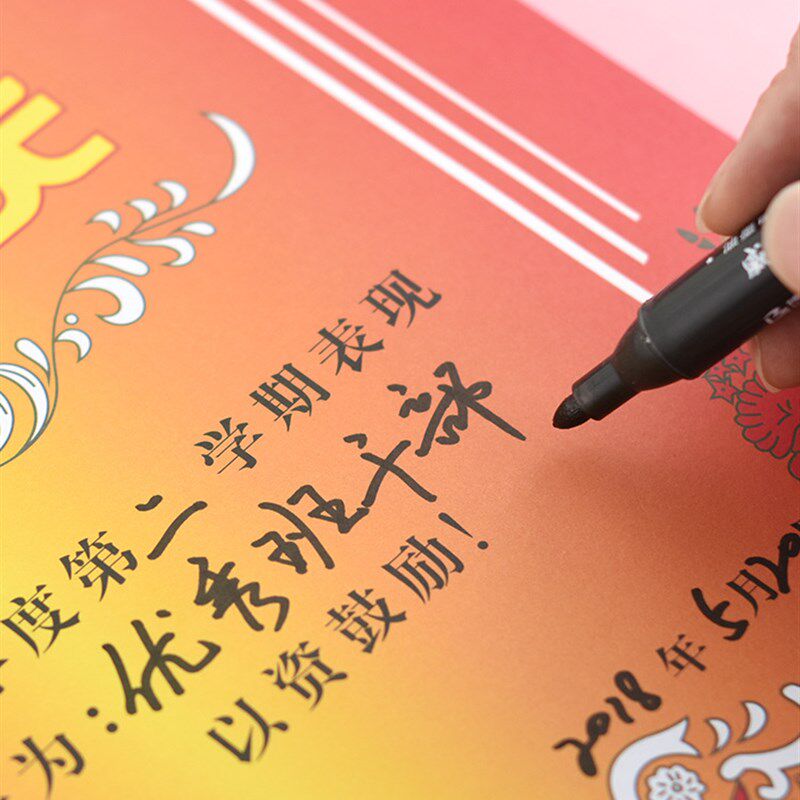 度第二学期表现
为:优秀班干部
以资鼓励!
2018年5月20